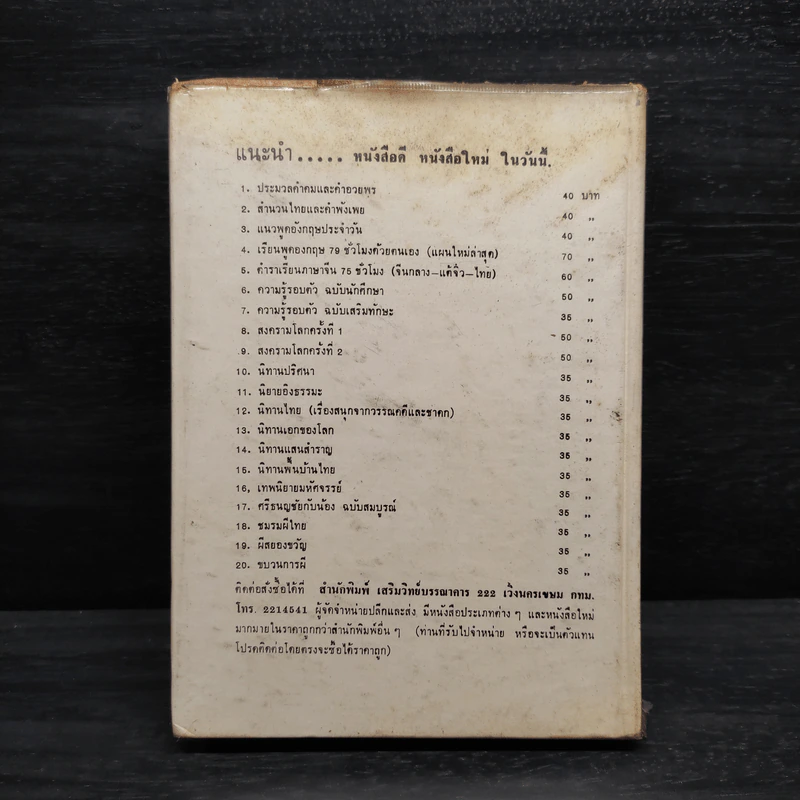 แนะนำ..... หนังสือดี หนังสือใหม่ ในวันนี้.
1. ประมวลคำคมและคำอวยพร 40 บาท
2. สำนวนไทยและคำพังเพย 40 ,,
3. แนวพูดอังกฤษประจำวัน 40 ,,
4. เรียนพูดอังกฤษ 79 ชั่วโมงด้วยตนเอง (แผนใหม่ล่าสุด) 70 ,,
5. ตำราเรียนภาษาจีน 75 ชั่วโมง (จีนกลาง-แต้จิ๋ว-ไทย) 60 ,,
6. ความรู้รอบตัว ฉบับนักศึกษา 50 ,,
7. ความรู้รอบตัว ฉบับเสริมทักษะ 35 ,,
8. สงครามโลกครั้งที่ 1 50 ,,
9. สงครามโลกครั้งที่ 2 50 ,,
10. นิทานปริศนา 35 ,,
11. นิยายอิงธรรมะ 35 ,,
12. นิทานไทย (เรื่องสนุกจากวรรณคดีและชาดก) 35 ,,
13. นิทานเอกของโลก 35 ,,
14. นิทานแสนสำราญ 35 ,,
15. นิทานพื้นบ้านไทย 35 ,,
16, เทพนิยายมหัศจรรย์ 35 ,,
17. ศรีธนญชัยกับน้อง ฉบับสมบูรณ์ 35 ,,
18. ชมรมผีไทย 35 ,,
19. ผีสยองขวัญ 35 ,,
20. ขบวนการผี 35 ,,
ติดต่อสั่งซื้อได้ที่ สำนักพิมพ์ เสริมวิทย์บรรณาคาร 222 เวิ้งนครเขษม กทม.
โทร. 2214541 ผู้จัดจำหน่ายปลีกและส่ง มีหนังสือประเภทต่าง ๆ และหนังสือใหม่
มากมายในราคาถูกกว่าสำนักพิมพ์อื่น ๆ (ท่านที่รับไปจำหน่าย หรือจะเป็นตัวแทน
โปรดติดต่อโดยตรงจะซื้อได้ราคาถูก)